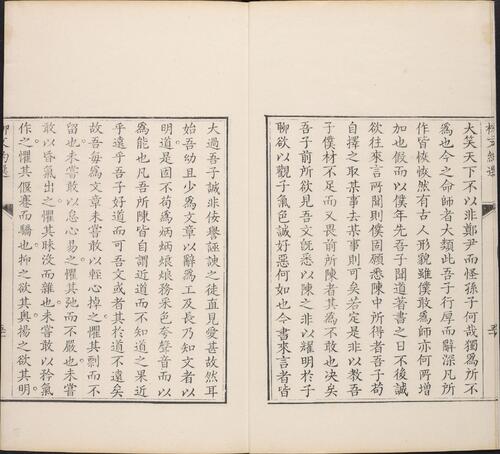 大笑天下不以非鄭尹而怪孫子何哉獨爲所不
爲也今之命師者大類此吾子行厚而辭深凡所
作皆恢恢然有古人形貌雖僕敢爲師亦何所增
加也假而以僕年先吾子聞道著書之日不後誠
欲往來言所聞則僕固願悉陳中所得者吾子苟
自擇之取某事去某事則可矣若定是非以教吾
子僕材不足而又畏前所陳者其爲不敢也决矣
吾子前所欲見吾文既悉以陳之非以耀明於子
聊欲以觀子氣色誠好惡何如也今書來言者皆
大過吾子誠非佞譽誣諛之徒直見愛甚故然耳
始吾幼且少爲文章以辭爲工及長乃知文者以
明道是固不苟爲炳炳烺烺務采色夸聲音而以
爲能也凡吾所陳皆自謂近道而不知道之果近
乎遠乎吾子好道而可吾文或者其於道不遠矣
故吾每爲文章未嘗敢以輕心掉之懼其剽而不
留也未嘗敢以怠心易之懼其弛而不嚴也未嘗
敢以昏氣出之懼其昧沒而雜也未嘗敢以矜氣
作之懼其偃蹇而驕也抑之欲其奧揚之欲其明